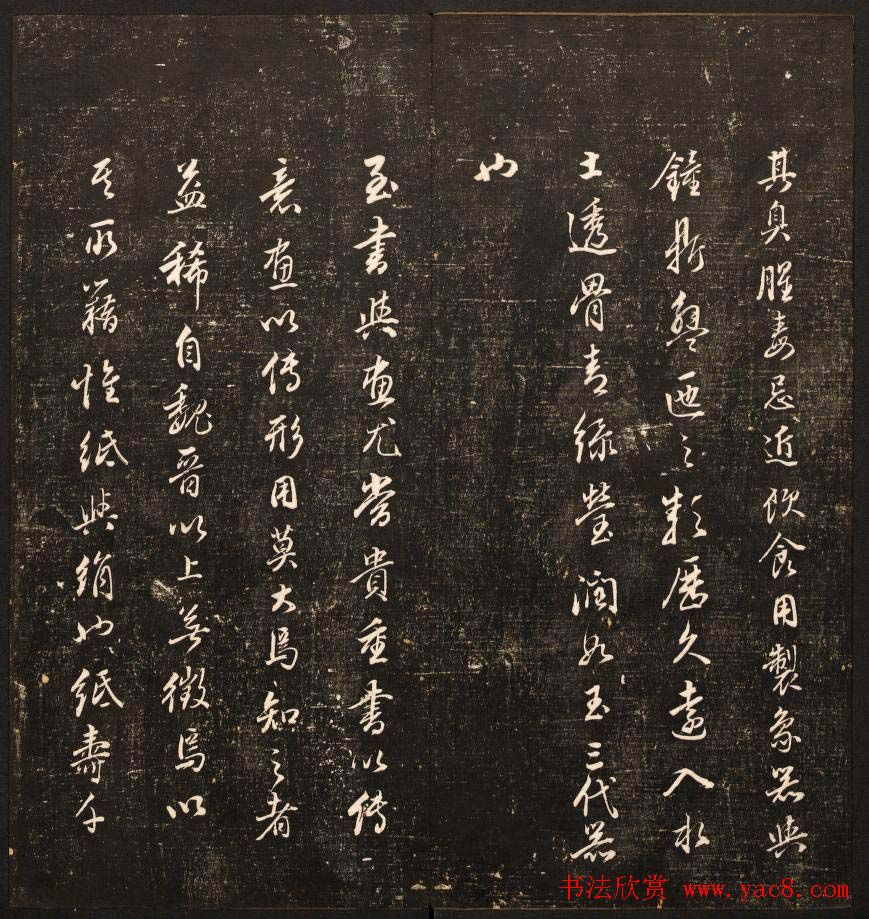 其臭腥毒忌近飲食用製象器與
鐘鼎盤匜之類歷久遠入水
土透骨青綠瑩潤如玉三代器
也
至書與畫尤當貴重書以傳
意畫以傳形用莫大焉知之者
益稀自魏晉以上無徵焉以
其所藉惟紙與絹也紙壽千
书法欣赏 www.yac8.com